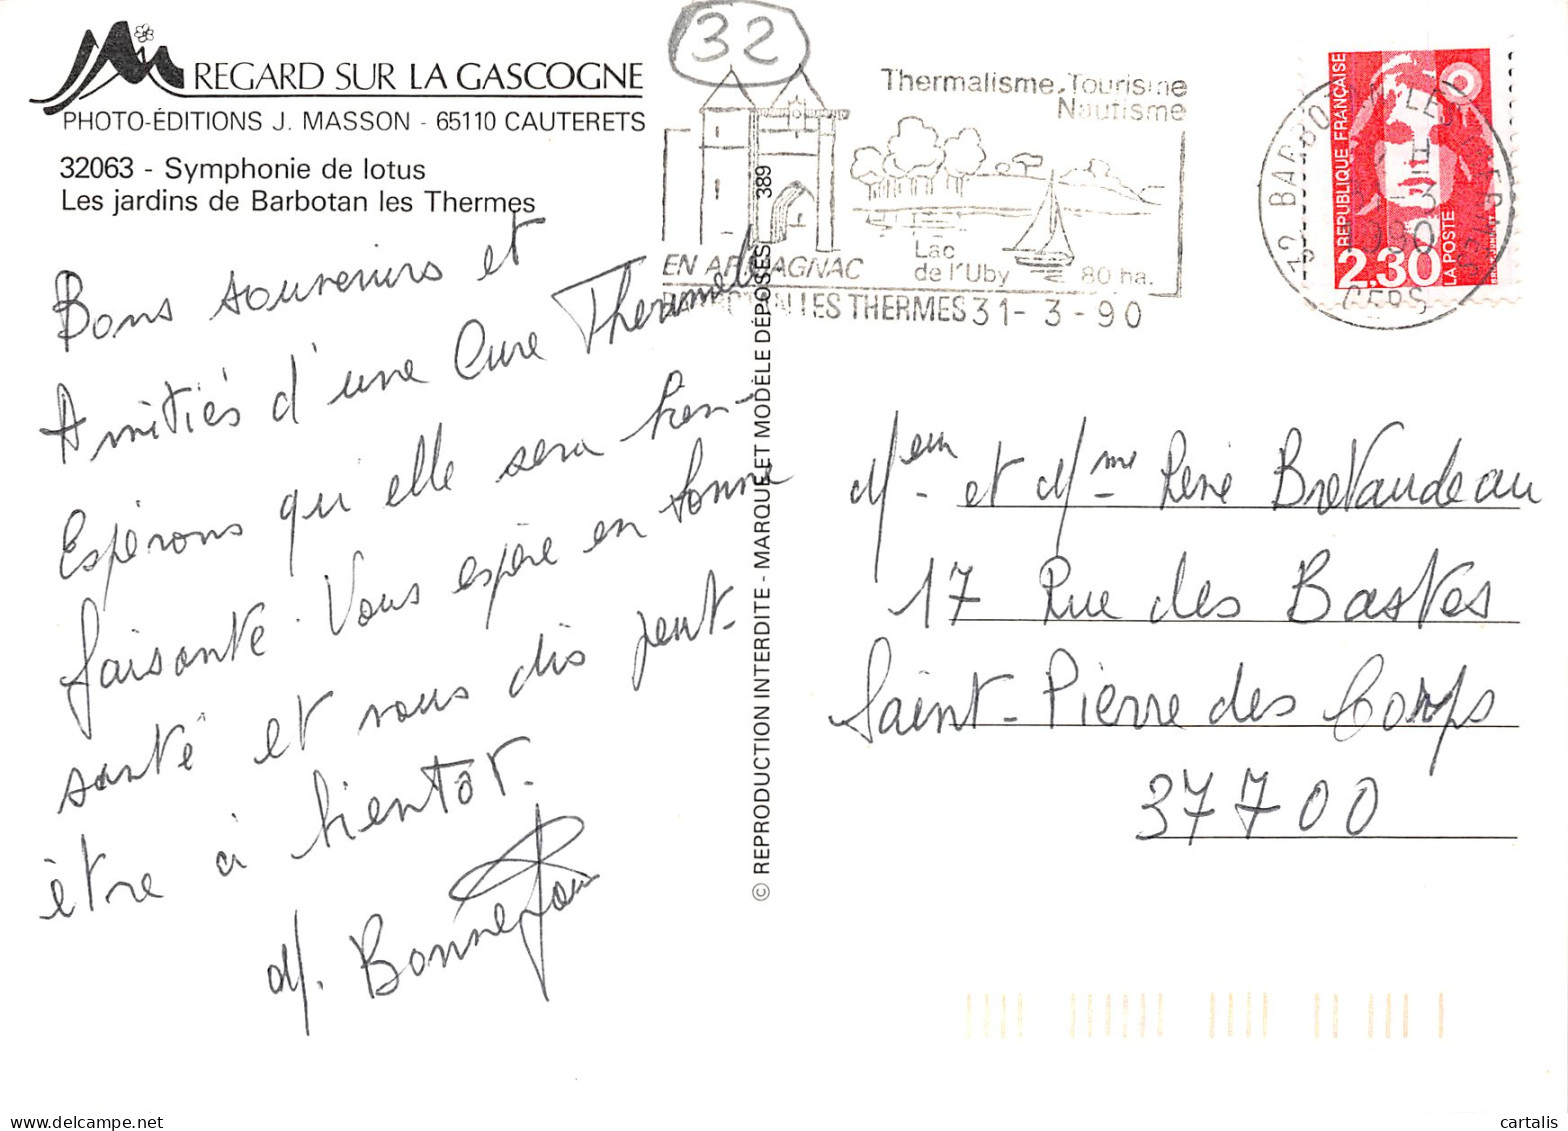 32
REGARD SUR LA GASCOGNE
PHOTO-ÉDITIONS J. MASSON - 65110 CAUTERETS
32063 - Symphonie de lotus
Les jardins de Barbotan les Thermes
Bons souvenirs et
Amitiés d'une Cure Thermale
Espérons qu'elle sera bien-
faisante. Vous espère en bonne
santé et vous dis peut-
être à bientôt.
M. Bonnefou
© REPRODUCTION INTERDITE - MARQUE ET MODÈLE DÉPOSÉS 389
Thermalisme. Tourisme
Nautisme
Lac
de l'Uby 80 ha.
EN ARMAGNAC
BARBOTAN LES THERMES 31-3-90
32 BARBOTAN LES THERMES
31-3
1990
GERS
RÉPUBLIQUE FRANÇAISE
2.30 LA POSTE
Meur et Mme René Bretaudeau
17 Rue des Bastes
Saint-Pierre des Corps
37700
cartalis